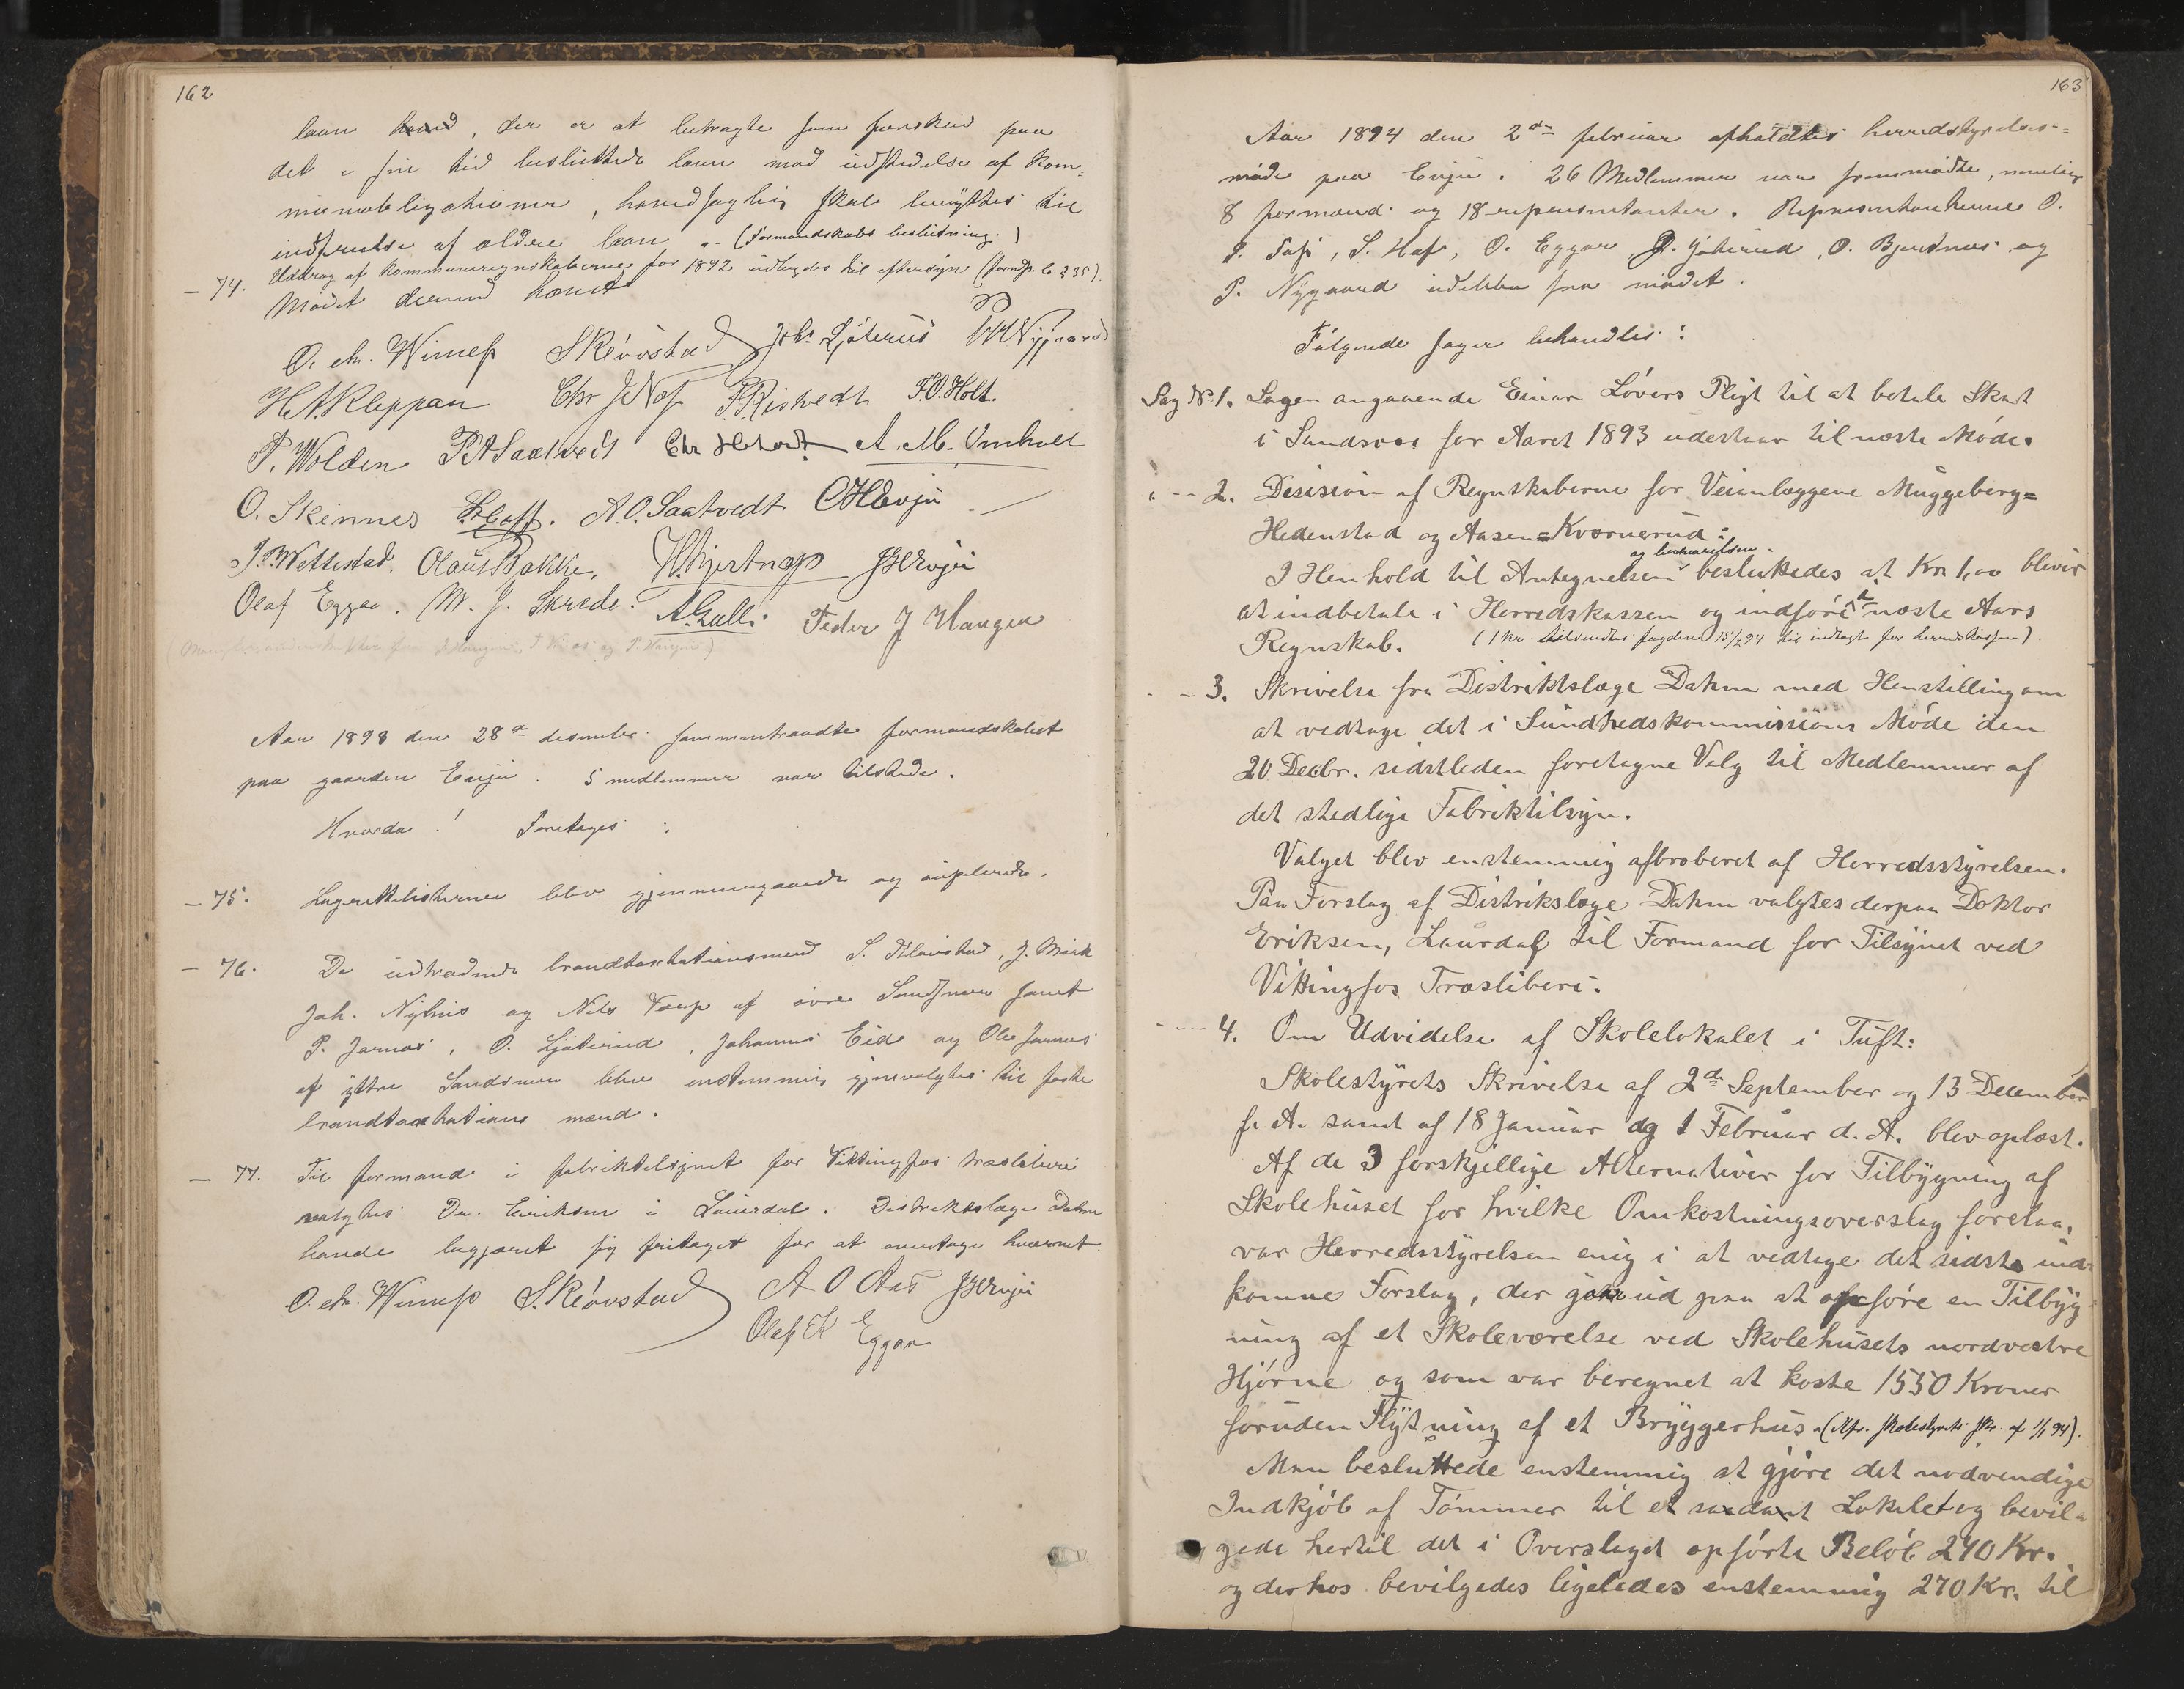 162
laan , der er at betragte som forskud paa
det i sin tid besluttede laan mod udstedelse af kom-
munaobligationer, hovedsaglig skal benyttes til
indfrielse af ældre laan. - (Formandskabs beslutning.)
- 74. Uddrag af kommuneregnskaberne for 1892 udlagdes til eftersyn (formsk. l. § 35).
Mødet dermed hævet
O. chr. Wimep S Kløvstad Joh. Ljøterud PNNygaard
H.A.Kleppan Chr J Næs P.Ristvedt F.O.Holt.
P. Wolden P A Saatvedt Chr A. M. Omholt
O. Skinnes L. Hoff. A.O. Saatvedt C H Evju
J. M Wettestad. Olaus Bakke. H. Hjertnæs Evju
Olaf Eggar. M. J. Skrede. A. Gulli. Peder J Haugen
Aar 1893 den 28de desember sammentraadte formandskabet
paa gaarden Evju. 5 medlemmer var tilstede.
Hvorda! Foretages :
- 75. Lagrettelisterne blev gjennemgaaede og suplerede.
- 76. De udtrædende brandtaxtationsmænd S. Kløvstad, J. Mærk
Joh. Nyhus og Nils Tæxp af øvre Sandsvær samt
P. Jarnæs, O. Ljøterud, Johannes Eid og Ole Jarnæs
af ytre Sandsvær blev enstemmig gjenvalgtes til faste
brandtaxtations mænd.
- 77. Til formand i fabriktilsynet for Vittingfos træsliberi
valgtes Dr. Eriksen i Laurdal. Distriktslæge Dahm
havde begjæret sig fritaget for at overtage hvervet.
O. chr. Wimep S. Kløvstad A O Aas Evju
Olaf K Eggar
163
Aar 1894 den 2den februar afholdtes herredstyrelses-
møde paa Evju. 26 Medlemmer var fremmødte, nemlig
8 formænd og 18 repræsentanter. Repræsentanterne O.
P. , S. Hof, O. Eggar J. Ljøterud, O. Bjertnæs og
P. Nygaard udeblev fra mødet.
Følgende sager behandles :
Sag No 1. Sagen angaaende Einar Løvers Pligt til at betale Skat
i Sandsvær for Aaret 1893 udestaar til næste Møde.
" -- 2. Desision af Regnskaberne for Veianlæggene Muggeberg=
Hedenstad og Aasen=Kværnerud:
og besvarelsen
I Henhold til Antegnelsen besluttedes at Kr 1,00 bliver
at indbetale i Herredskassen og indføre i næste Aars
Regnskab. (1 kr. tilsendtes fogden 15/2 94 til indtægt for herredskassen).
- - 3. Skrivelse fra Distriktslæge Dahm med Henstilling om
at vedtage det i Sundhedskommissions Møde den
20 Decbr. sidstleden foretagne Valg til Medlemmer af
det stedlige Fabriktilsyn.
Valget blev enstemmig afbroberet af Herredsstyrelsen.
Paa Forslag af Distrikslæge Dahm valgtes derpaa Doktor
Eriksen, Laurdal til Formand for Tilsynet ved
Vittingfos Træsliberi.
- - 4. Om Udvidelse af Skolelokalet i Tuft:
Skolestyrets Skrivelse af 2de September og 13 December
f. A. samt af 18 Januar og 1 Februar d. A. blev oplæst.
Af de 3 forskjellige Alternativer for Tilbygning af
Skolehuset for hvilke Omkostningsoverslag forelaa,
var Herredsstyrelsen enig i at vedtage det sidste ind-
komne Forslag, der gik ud paa at opføre en Tilbyg-
ning af et Skoleværelse ved Skolehusets nordvestre
Hjørne og som var beregnet at koste 1550 Kroner
foruden Flytning af et Bryggerhus. (Afr. skolestyrets skr. af 1/1 94).
Man besluttede enstemmig at gjøre det nødvendige
Indkjøb af Tømmer til et saadant Lokale og bevil-
gede hertil det i Overslaget opførte Beløb 240 Kr.
og derhos bevilgedes ligeledes enstemmig 270 Kr. til